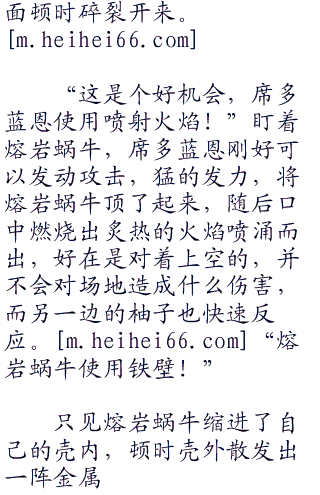 面顿时碎裂开来。
[m.heihei66.com]
“这是个好机会，席多
蓝恩使用喷射火焰！”盯着
熔岩蜗牛，席多蓝恩刚好可
以发动攻击，猛的发力，将
熔岩蜗牛顶了起来，随后口
中燃烧出炙热的火焰喷涌而
出，好在是对着上空的，并
不会对场地造成什么伤害，
而另一边的柚子也快速反
应。[m.heihei66.com]“熔
岩蜗牛使用铁壁！”
只见熔岩蜗牛缩进了自
己的壳内，顿时壳外散发出
一阵金属